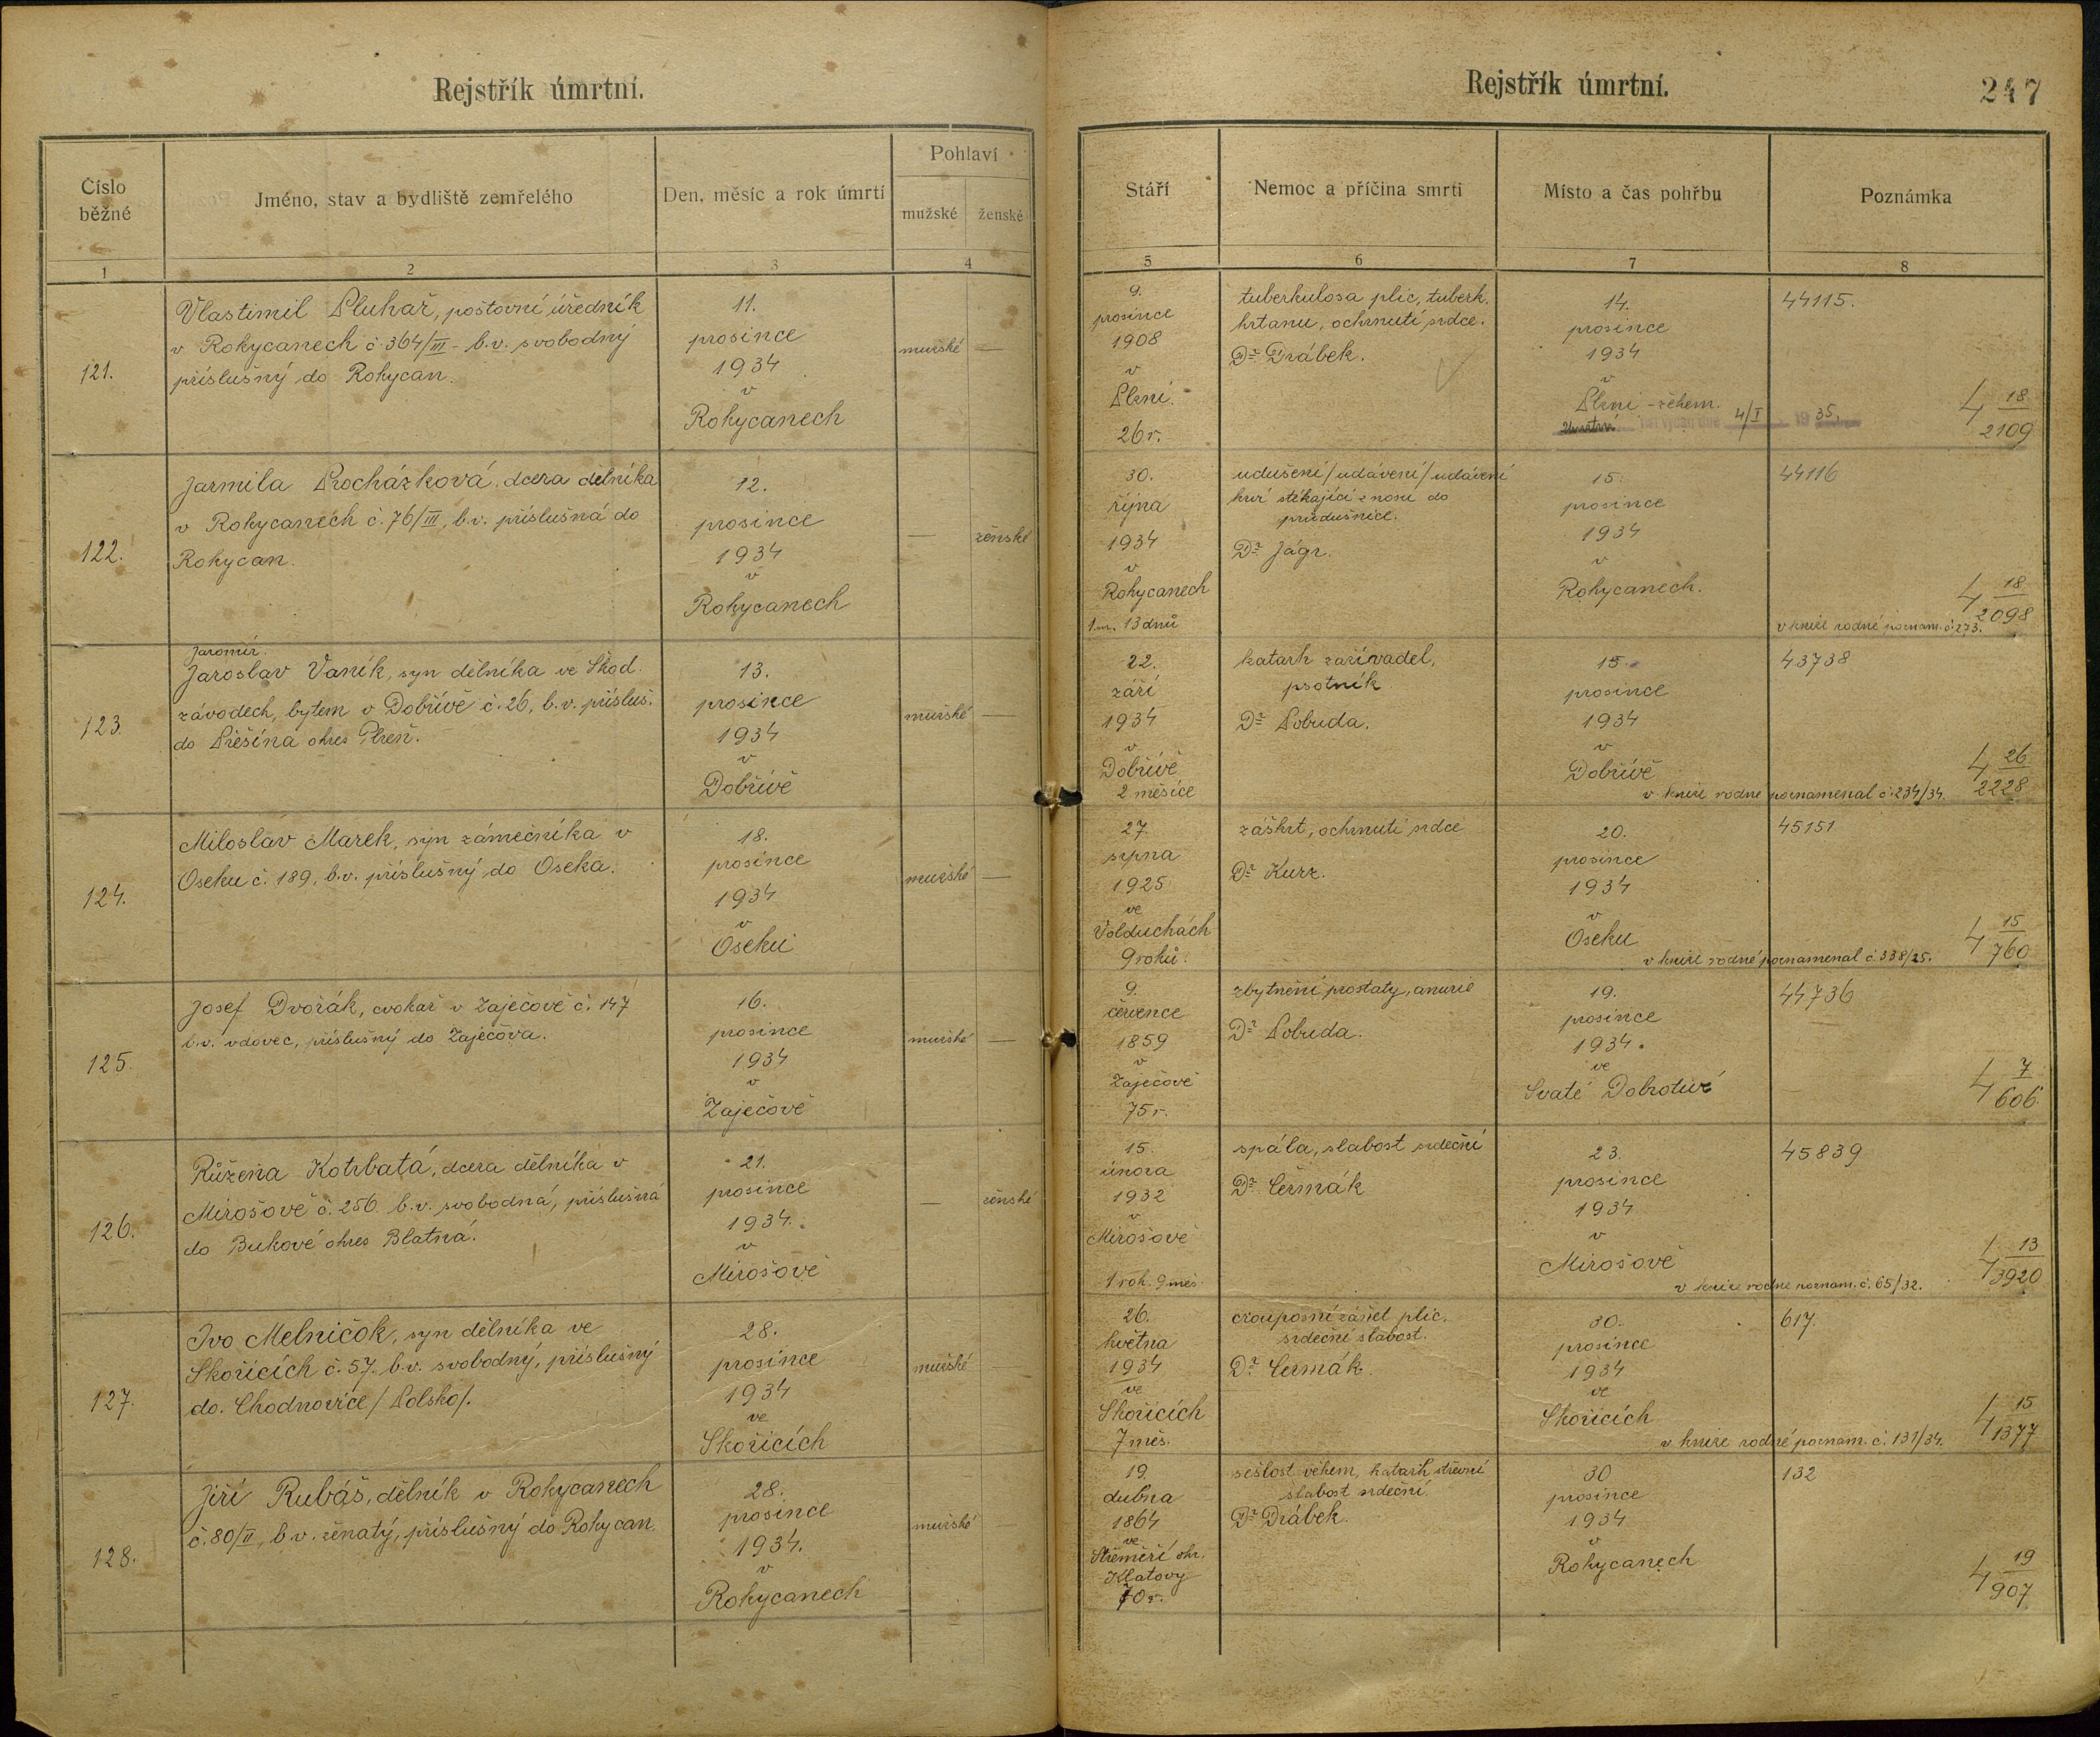 Rejstřík úmrtní.
Číslo běžné
Jméno, stav a bydliště zemřelého
Den, měsíc a rok úmrtí
Pohlaví
mužské
ženské
1
2
3
4
121.
Vlastimil Pluhař, poštovní úředník
v Rokycanech č. 364/III - b.v. svobodný
příslušný do Rokycan.
11.
prosince
1934
v
Rokycanech
mužské
—
122.
Jarmila Procházková, dcera dělníka
v Rokycanech č. 76/III, b.v. příslušná do
Rokycan.
12.
prosince
1934
v
Rokycanech
—
ženské
123.
Jaromír.
Jaroslav Vaník, syn dělníka ve Škod.
závodech, bytem v Dobřívě č. 26, b.v. přísluš.
do Příšína okres Plzeň.
13.
prosince
1934
v
Dobřívě
mužské
—
124.
Miloslav Marek, syn zámečníka v
Oseku č. 189, b.v. příslušný do Oseka.
18.
prosince
1934
v
Oseku
mužské
—
125.
Josef Dvořák, cvokař v Zaječově č. 147
b.v. vdovec, příslušný do Zaječova.
16.
prosince
1934
v
Zaječově
mužské
—
126.
Růžena Kotrbatá, dcera dělníka v
Mirošově č. 256. b.v. svobodná, příslušná
do Bukové okres Blatná.
21.
prosince
1934.
v
Mirošově
—
ženské
127.
Ivo Melničok, syn dělníka ve
Skořicích č. 57. b.v. svobodný, příslušný
do. Chodnovice /Polsko/.
28.
prosince
1934
ve
Skořicích
mužské
128.
Jiří Rubáš, dělník v Rokycanech
č. 80/II, b.v. ženatý, příslušný do Rokycan.
28.
prosince
1934.
v
Rokycanech
mužské
Rejstřík úmrtní.
247
Stáří
Nemoc a příčina smrti
Místo a čas pohřbu
Poznámka
5
6
7
8
9.
prosince
1908
v
Plzni.
26 r.
tuberkulosa plic, tuberk.
hrtanu, ochrnutí srdce.
Dr. Drábek.
14.
prosince
1934
v
Plzni - žehem.
4/I 1935.
44115.
4 18
2109
30.
října
1934
v
Rokycanech
1 m. 13 dnů
udušení/udávení/udávení
krví stékající z nosu do
průdušnice.
Dr. Jágr.
15.
prosince
1934
v
Rokycanech.
44116
4 18
2098
v knize rodné poznam. č. 273.
22.
září
1934
v
Dobřívě
2 měsíce
katarh zažívadel,
psotník
Dr. Pobuda.
15.
prosince
1934
v
Dobřívě
v knize rodné poznamenal č. 234/34.
43738
4 26
2228
27.
srpna
1925
ve
Volduchách
9 roků.
záškrt, ochrnutí srdce
Dr. Kurz.
20.
prosince
1934
v
Oseku
v knize rodné poznamenal č. 338/25.
45151
4 15
760
9.
července
1859
v
Zaječově
75 r.
zbytnění prostaty, anurie
Dr. Pobuda.
19.
prosince
1934.
ve
Svaté Dobrotivé
44736
4 7
606
15.
února
1932
v
Mirošově
1 rok. 9 měs.
spála, slabost srdeční
Dr. Čermák
23.
prosince
1934
v
Mirošově
v knize rodné poznam. č. 65/32.
45839
4 13
3920
26.
května
1934
ve
Skořicích
7 měs.
crouposní zánět plic,
srdeční slabost.
Dr. Čermák.
30.
prosince
1934
ve
Skořicích
v knize rodné poznam. č. 131/34.
617.
4 15
1377
19.
dubna
1864
ve
okr.
Klatovy
70 r.
sešlost věkem, katarh střevní
slabost srdeční.
Dr. Drábek.
30
prosince
1934
v
Rokycanech
132
4 19
907